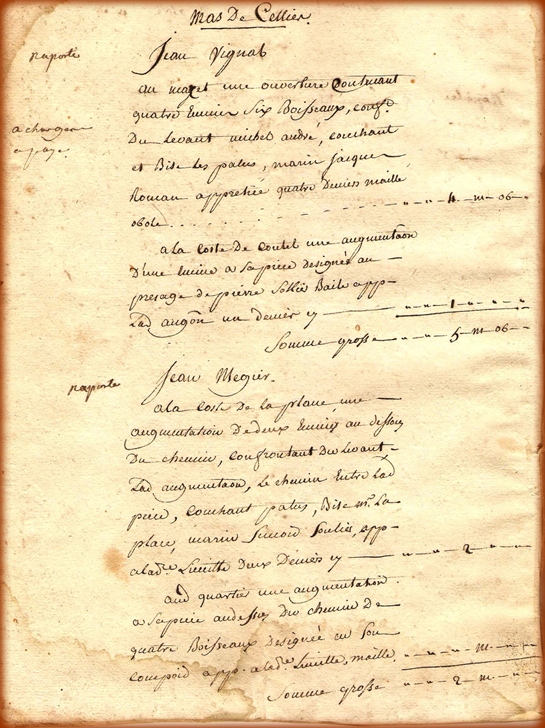 Mas De Cellier.
raporté
Jean Vignal
au mazet une ouverture Contenant
quatre Emines Six Boisseaux, conf.t
Du Levant michel andré, couchant
a charger
a page
et Bise les patus, marin Jacques
Roman appretiée quatre Deniers maille
obole . . . . . . - - - - " - " - 4 - m - 06 -
a la Coste De Coulet une augmentaon
D'une Emine a Sa piece designée au
presage de pierre Solliés Baile app-
Lad augon un denier cy — " - " - 1 - " - " -
Somme grosse — " - " - 5 - m - 06 -
raporté
Jean Megier.
a la Coste de la plane une -
augmentation De deux Emines au dessous
Du chemin, Confrontant Du Levant -
Lad augmentaon, Le chemin Entre Lad
piece, Couchant patus, Bise mr. La
place, marin Simond Souliés, app-
a lad.e Deux Deniers cy — " - " - 2 - " - " -
aud quartier une augmentation
a Sa piece au dessus Du chemin De
quatre Boisseaux Designée en Son
Compoid app. a lad.e maille. - " - " - " - m - " -
Somme grosse — " - " - 2 - m - " -